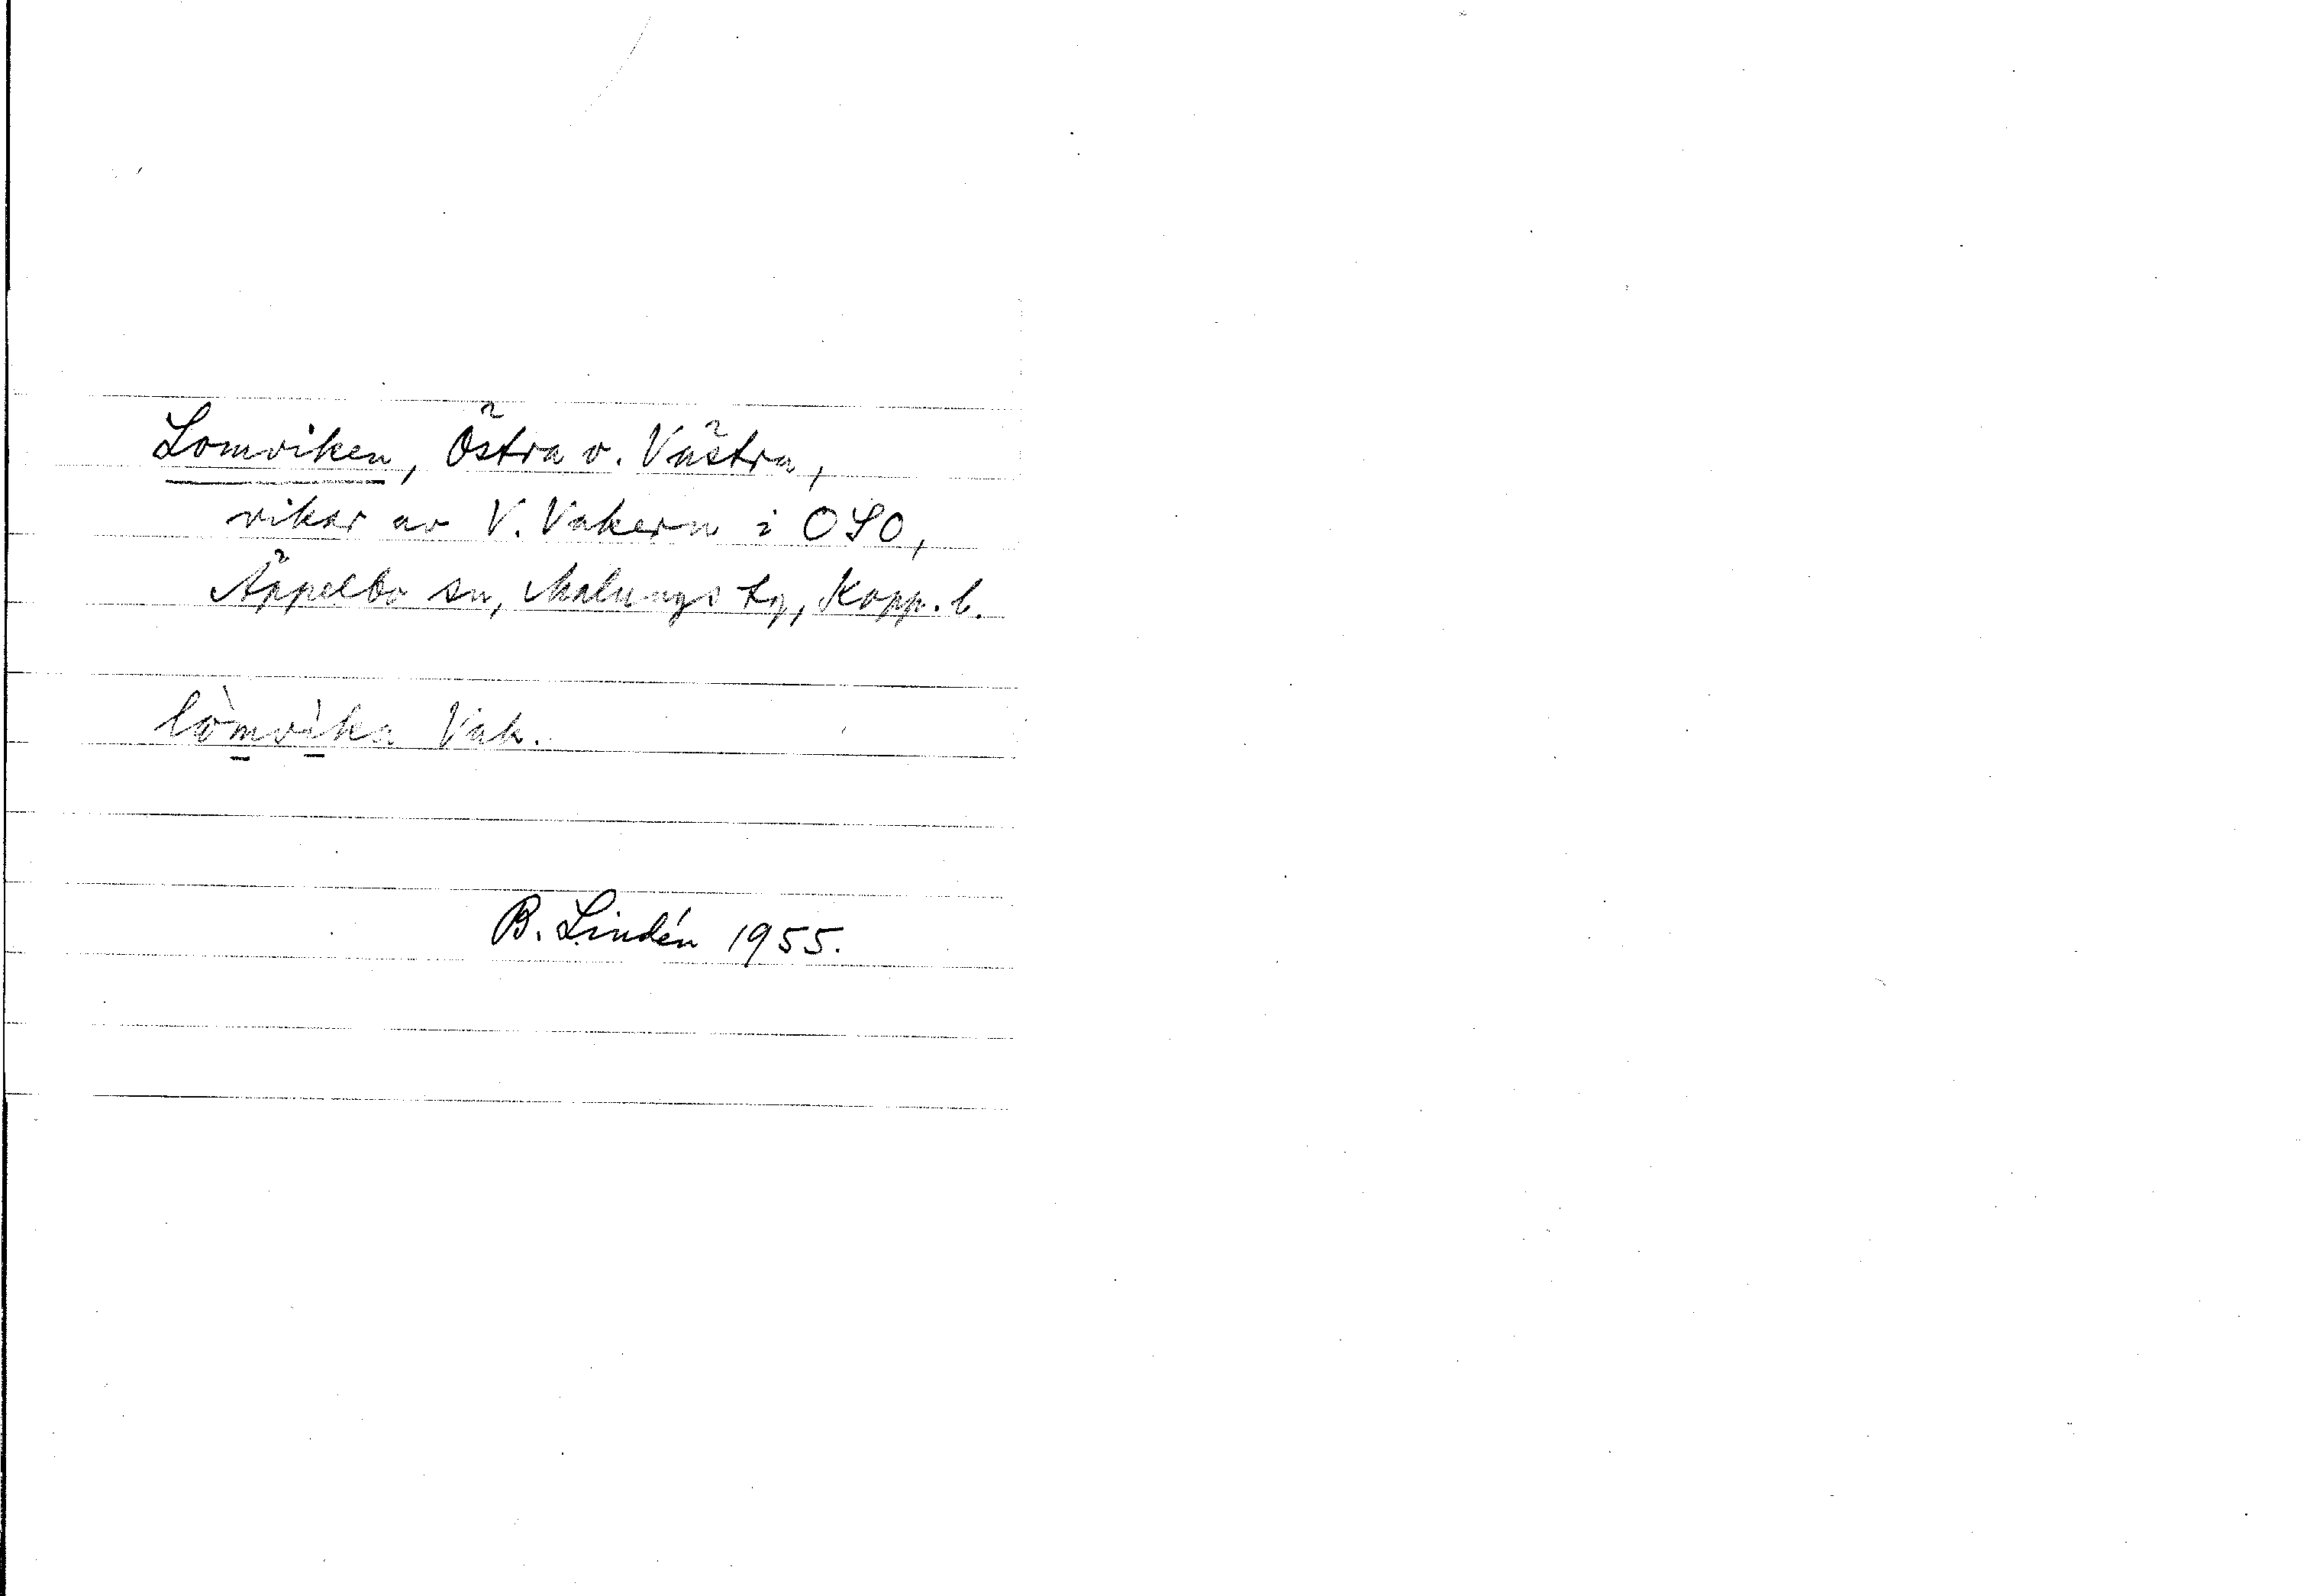 Lomviken, Östra o. Västra,
vikar av V. Vakern i OSO,
Äppelbo sn, Malungs tg, Kopp. l.
lòmvìka Vak.
B. Lindén 1955.